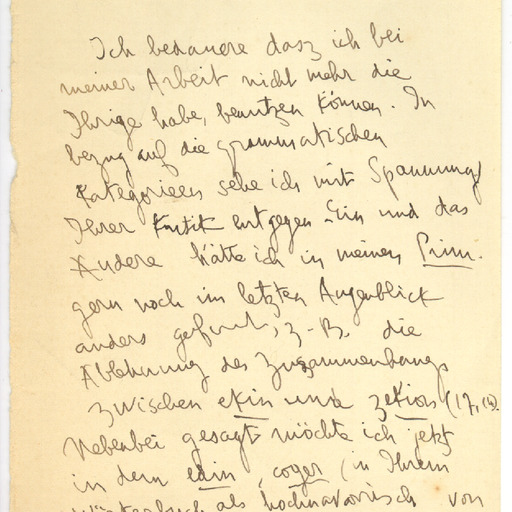 Ich bedauere dasz ich bei
meiner Arbeit nicht mehr die
Ihrige habe, benutzen können. In
bezug auf die grammatischen
Kategorieen sehe ich mit Spannung
Ihrer Kritik entgegen. Ein und das
Andere hätte ich in meinen Prim.
gern noch im letzten Augenblick
anders z. B. die
Ablehnung des Zusammenhangs
zwischen ekin und zekion (17,
Nebenbei gesagt möchte ich jetzt
in dem edin, coger (in Ihrem
Wörterbuch als hochnavarrisch von